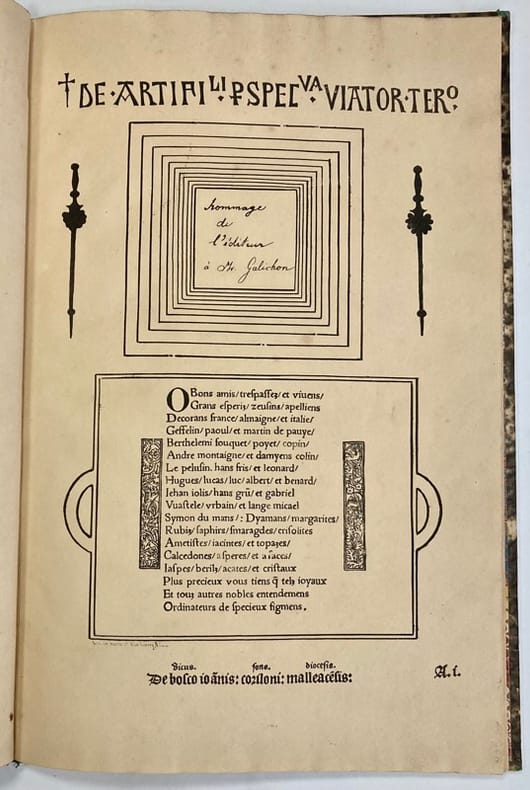 † DE · ARTIFI LI · PSPEC VA · VIATOR · TERO.
hommage
de
l'éditeur
à Mr. Galichon
O Bons amis/ trespassez/ et viuens/
Grans esperiz/ zeusins/ apelliens
Decorans france/ almaigne/ et italie/
Geffelin/ paoul/ et martin de pauye/
Berthelemi fouquet/ poyet/ copin/
Andre montaigne/ et damyens colin/
Le pelusin. hans fris/ et leonard/
Hugues/ lucas/ luc/ albert/ et benard/
Iehan iolis/ hans grũ/ et gabriel
Vuastele/ vrbain/ et lange micael
Symon du mans/: Dyamans/ margarites/
Rubiz/ saphirs/ smaragdes/ crisolites
Ametistes/ iacintes/ et topazes/
Calcedones/ asperes/ et a faces/
Iaspes/ berilz/ acates/ et cristaux
Plus precieux vous tiens q̃ telz ioyaux
Et tous autres nobles entendemens
Ordinateurs de specieux figmens.
dicus. sens. diocesis.
De bosco ioãnis: corsloni: malleacẽsis:
A.i.